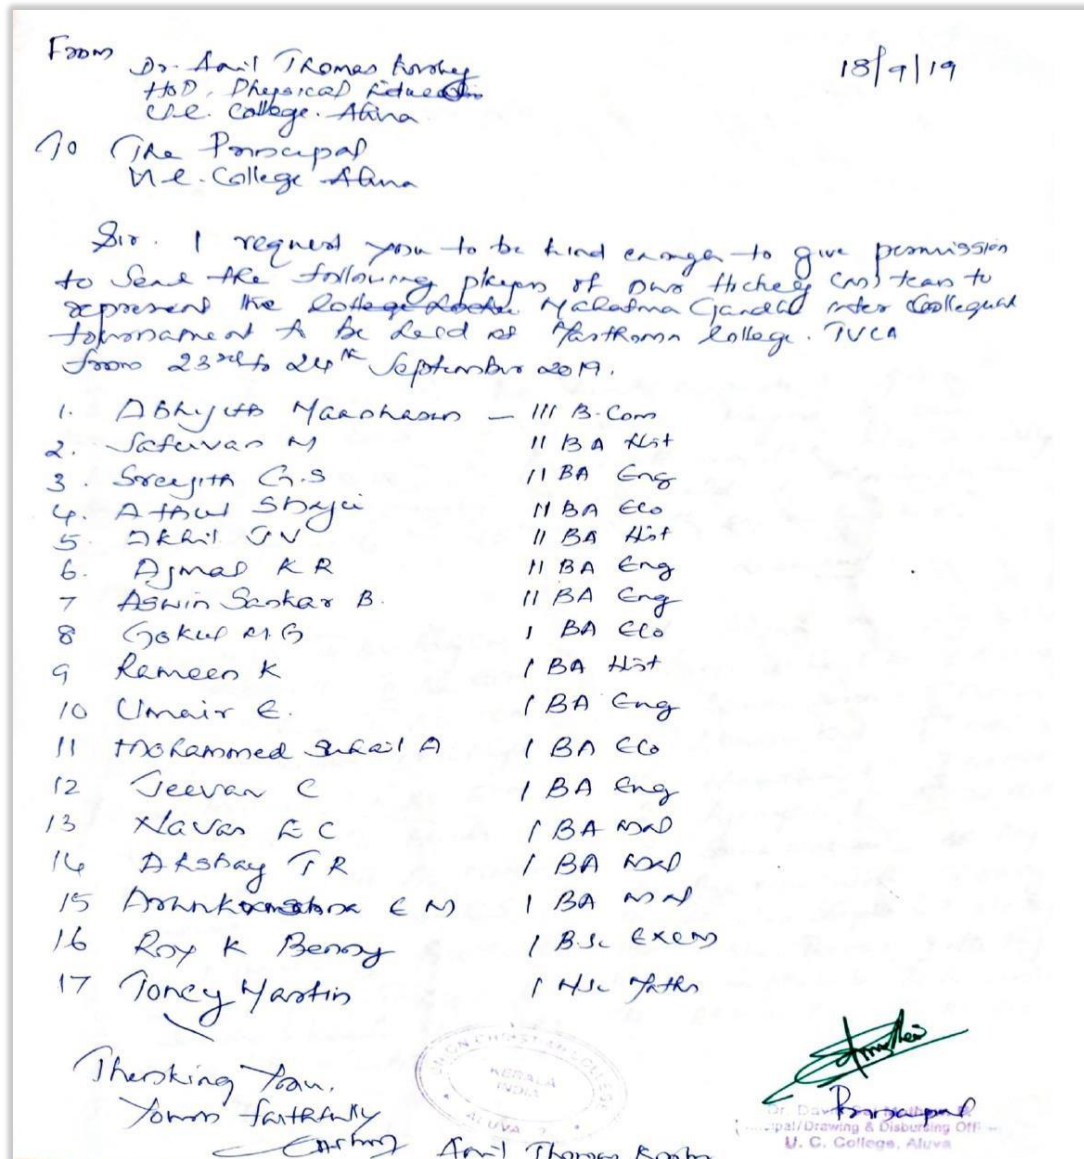 From
18/9/19
Dr. Anil Thomas Koshy
HOD, Physical Education
U.C. College. Aluva
To The Principal
U.C. College Aluva
Sir. I request you to be kind enough to give permission
to send the following players of our Hockey (m) team to
represent the College Mahatma Gandhi inter Collegiate
tournament to be held at Marthoma College. TVLA
from 23rd to 24th September 2019.
1. Abhyith Manoharan - III B.Com
2. Safuvan M II BA Hist
3. Sreejith G.S II BA Eng
4. Athul Shaji II BA Eco
5. Akhil J V II BA Hist
6. Ajmal K R II BA Eng
7 Aswin Sankar B. II BA Eng
8 Gokul M.G I BA Eco
9 Rameen K I BA Hist
10 Umair E. I BA Eng
11 Mohammed Suhail A I BA Eco
12 Jeevan C I BA Eng
13 Navan E C I BA Mal
14 Akshay T R I BA Mal
15 E M I BA Mal
16 Roy K Benny I BSc
17 Toney Martin I MSc Maths
Thanking You.
Yours faithfully
Anil Thomas Koshy
UNION CHRISTIAN COLLEGE
KERALA
INDIA
ALUVA
Principal
Dr. David
Drawing & Disbursing Off
U. C. College, Aluva